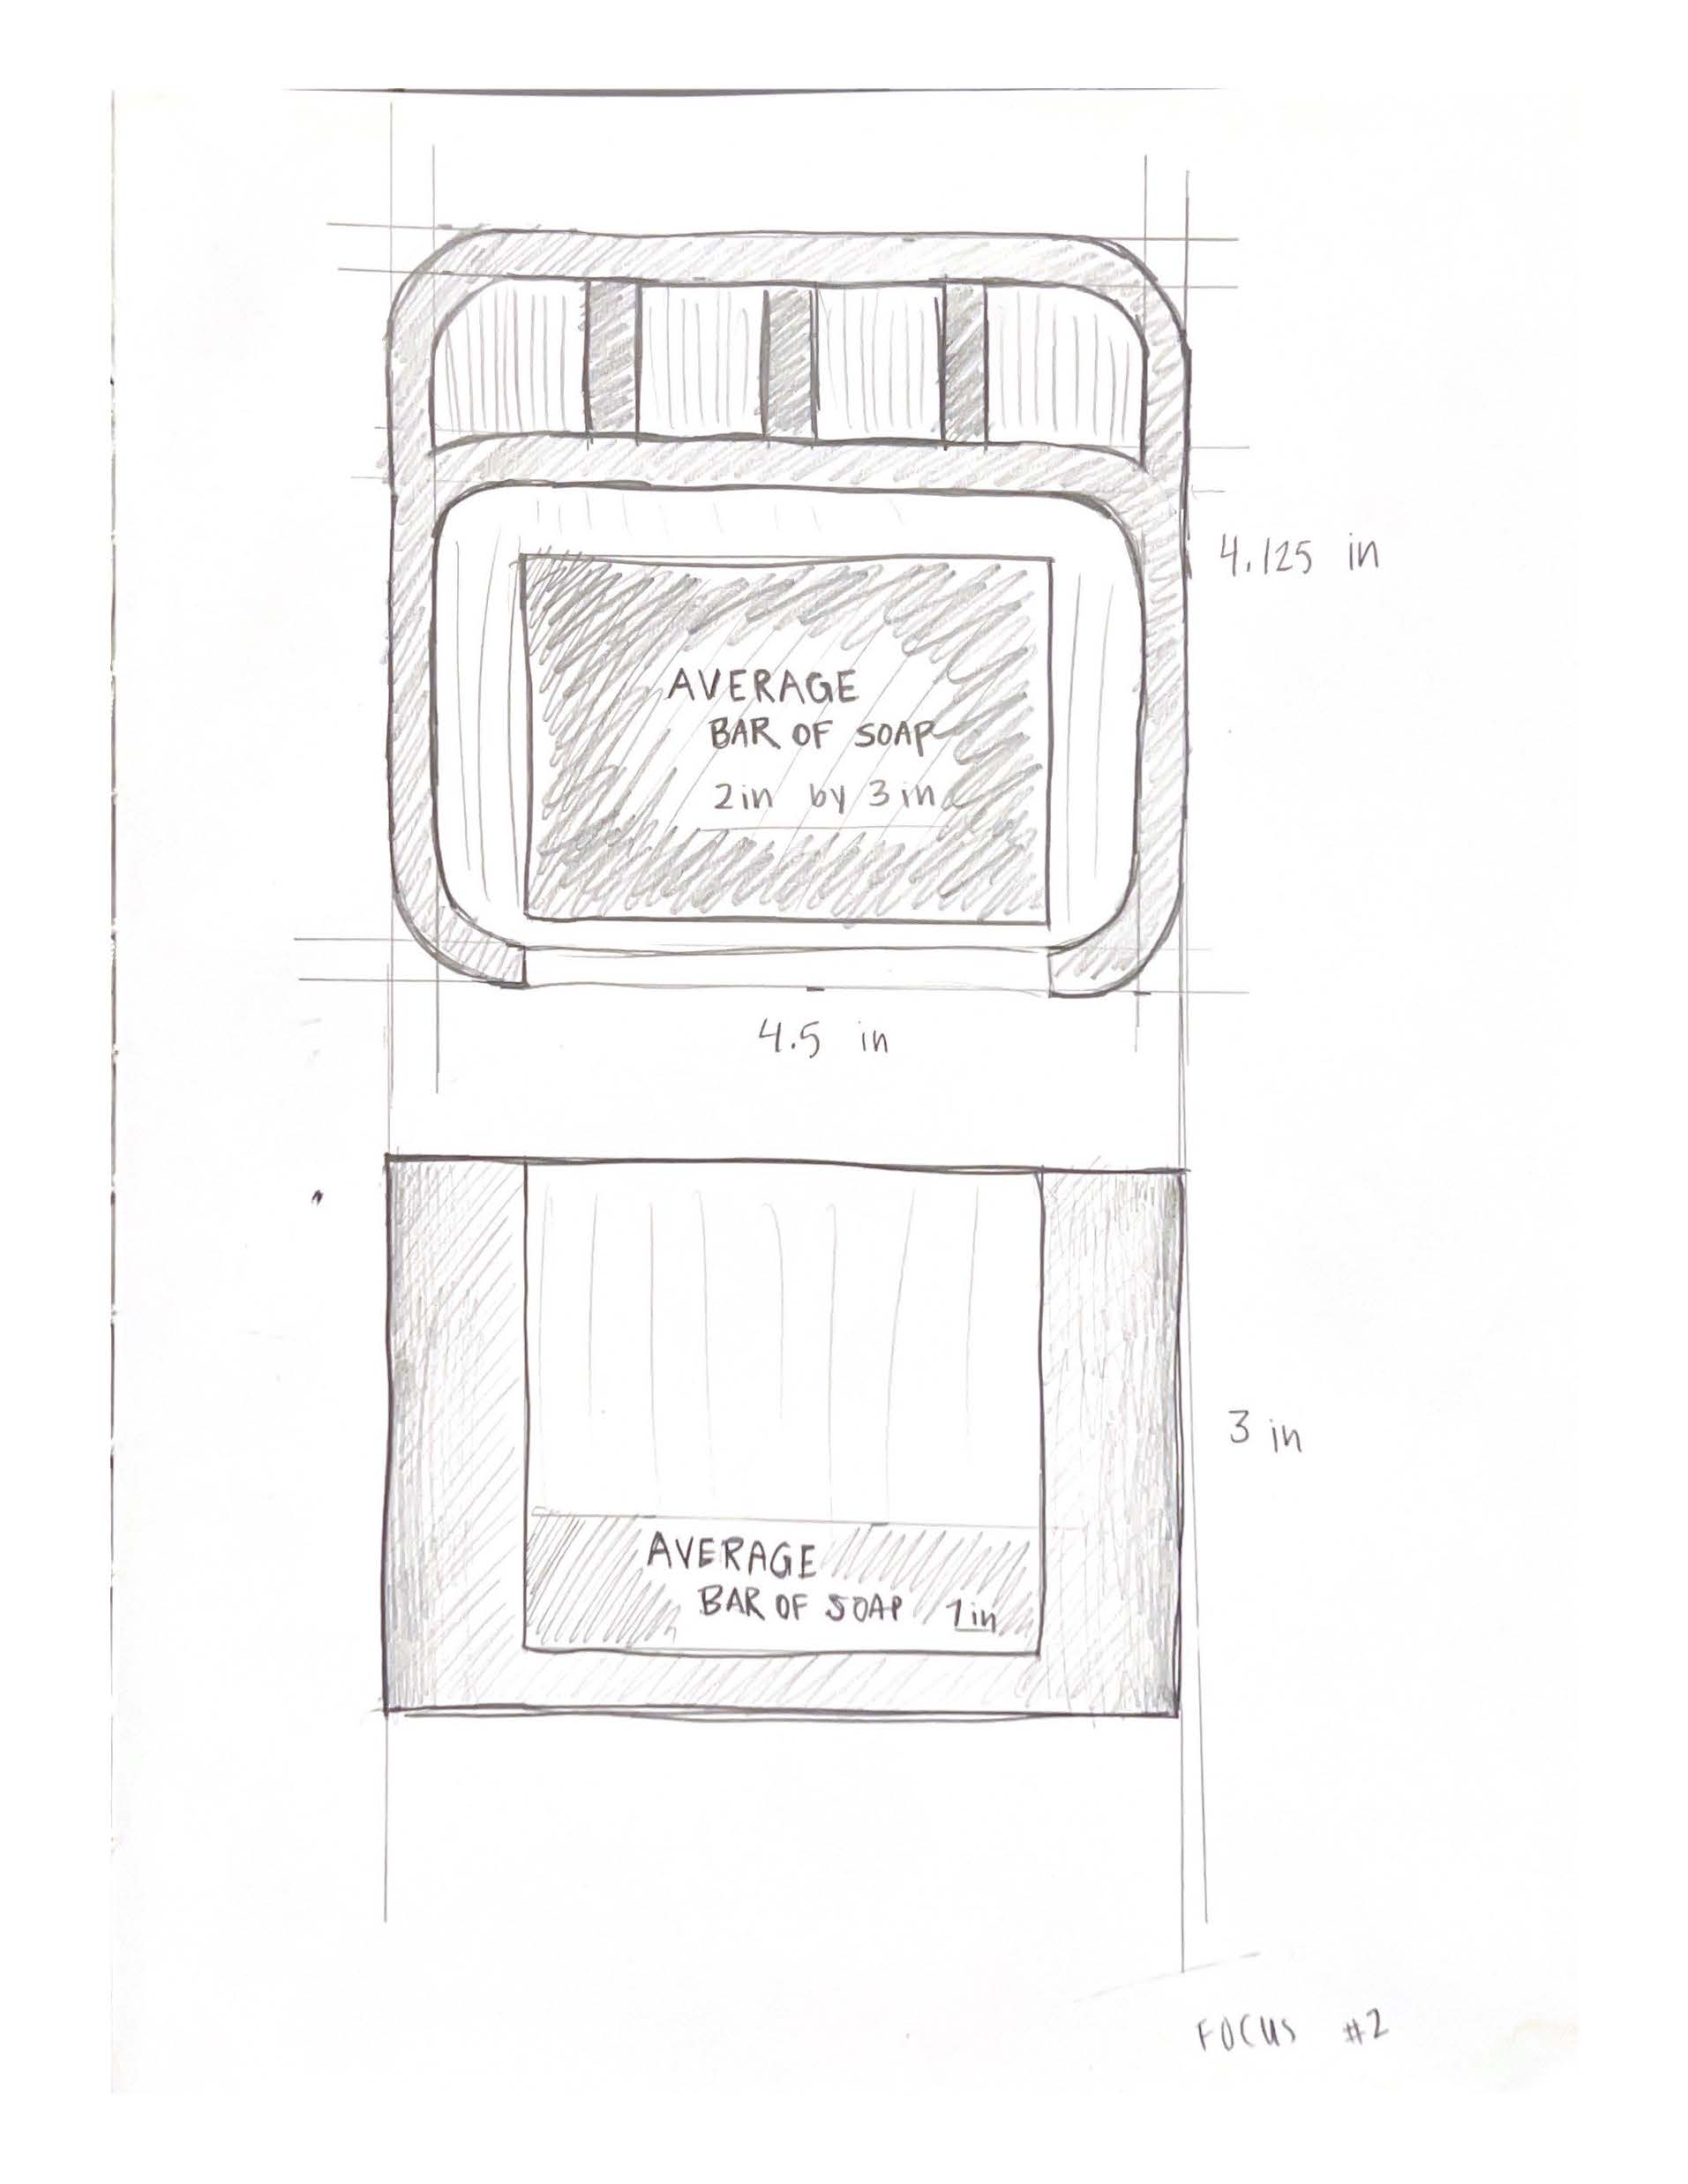 4.125 in
AVERAGE
BAR OF SOAP
2in by 3in
4.5 in
3 in
AVERAGE
BAR OF SOAP 1in
FOCUS #2